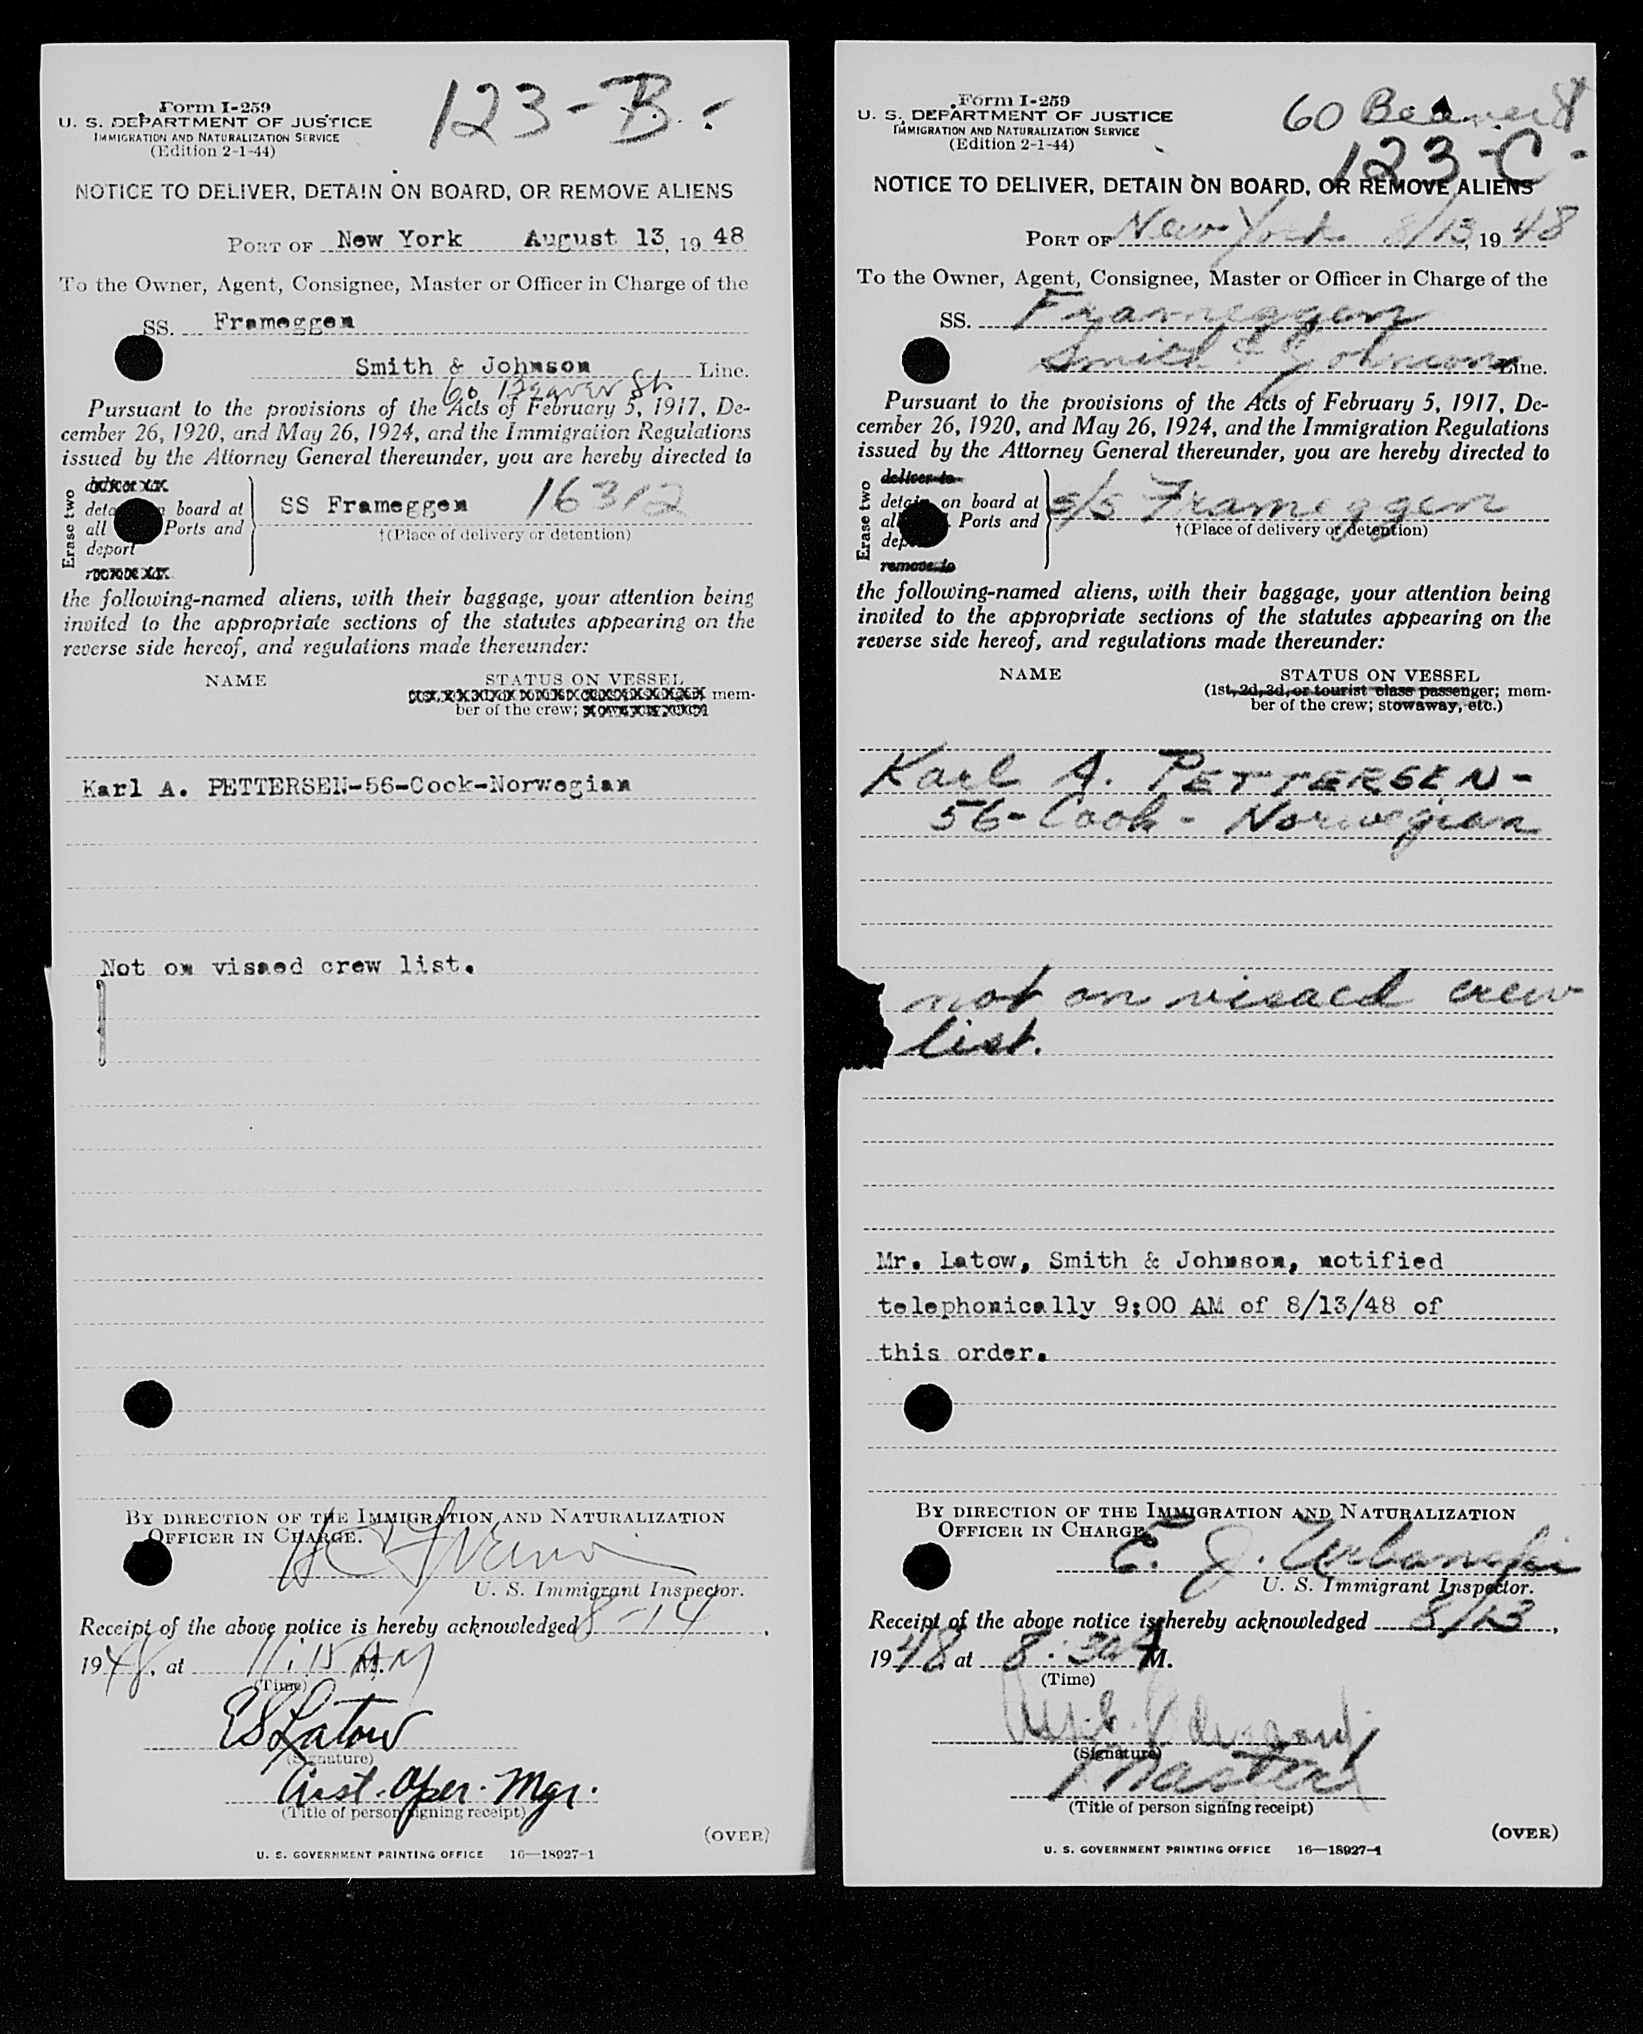 Form I-259
U. S. DEPARTMENT OF JUSTICE
IMMIGRATION AND NATURALIZATION SERVICE
(Edition 2-1-44)
123-B-
NOTICE TO DELIVER, DETAIN ON BOARD, OR REMOVE ALIENS
PORT OF New York August 13, 1948
To the Owner, Agent, Consignee, Master or Officer in Charge of the
SS. Frameggen
Smith & Johnson Line.
60 Beaver St
Pursuant to the provisions of the Acts of February 5, 1917, De-
cember 26, 1920, and May 26, 1924, and the Immigration Regulations
issued by the Attorney General thereunder, you are hereby directed to
Erase two
board at
all Ports and
deport
SS Frameggen 16312
†(Place of delivery or detention)
the following-named aliens, with their baggage, your attention being
invited to the appropriate sections of the statutes appearing on the
reverse side hereof, and regulations made thereunder:
NAME STATUS ON VESSEL
mem-
ber of the crew;
Karl A. PETTERSEN-56-Cook-Norwegian
Not on visaed crew list.
BY DIRECTION OF THE IMMIGRATION AND NATURALIZATION
OFFICER IN CHARGE.
U. S. Immigrant Inspector.
Receipt of the above notice is hereby acknowledged 8-14,
1948, at 11:15 AM
(Time)
ES Latow
(Signature)
Asst. Oper. Mgr.
(Title of person signing receipt)
(OVER)
U. S. GOVERNMENT PRINTING OFFICE 16—18927-1
Form I-259
U. S. DEPARTMENT OF JUSTICE
IMMIGRATION AND NATURALIZATION SERVICE
(Edition 2-1-44)
60 Beaver St
123-C-
NOTICE TO DELIVER, DETAIN ON BOARD, OR REMOVE ALIENS
PORT OF New York 8/13, 1948
To the Owner, Agent, Consignee, Master or Officer in Charge of the
SS. Frameggen
Smith & Johnson Line.
Pursuant to the provisions of the Acts of February 5, 1917, De-
cember 26, 1920, and May 26, 1924, and the Immigration Regulations
issued by the Attorney General thereunder, you are hereby directed to
Erase two
deliver to
detain on board at
Ports and
remove to
s/s Frameggen
†(Place of delivery or detention)
the following-named aliens, with their baggage, your attention being
invited to the appropriate sections of the statutes appearing on the
reverse side hereof, and regulations made thereunder:
NAME STATUS ON VESSEL
(1st, 2d, 3d, or tourist class passenger; mem-
ber of the crew; stowaway, etc.)
Karl A. PETTERSEN-
56-Cook-Norwegian
not on visaed crew
list.
Mr. Latow, Smith & Johnson, notified
telephonically 9:00 AM of 8/13/48 of
this order.
BY DIRECTION OF THE IMMIGRATION AND NATURALIZATION
OFFICER IN CHARGE.
E. J. Urbanski
U. S. Immigrant Inspector.
Receipt of the above notice is hereby acknowledged 8/13,
1948 at 8:30 AM.
(Time)
(Signature)
Master
(Title of person signing receipt)
(OVER)
U. S. GOVERNMENT PRINTING OFFICE 16—18927-1